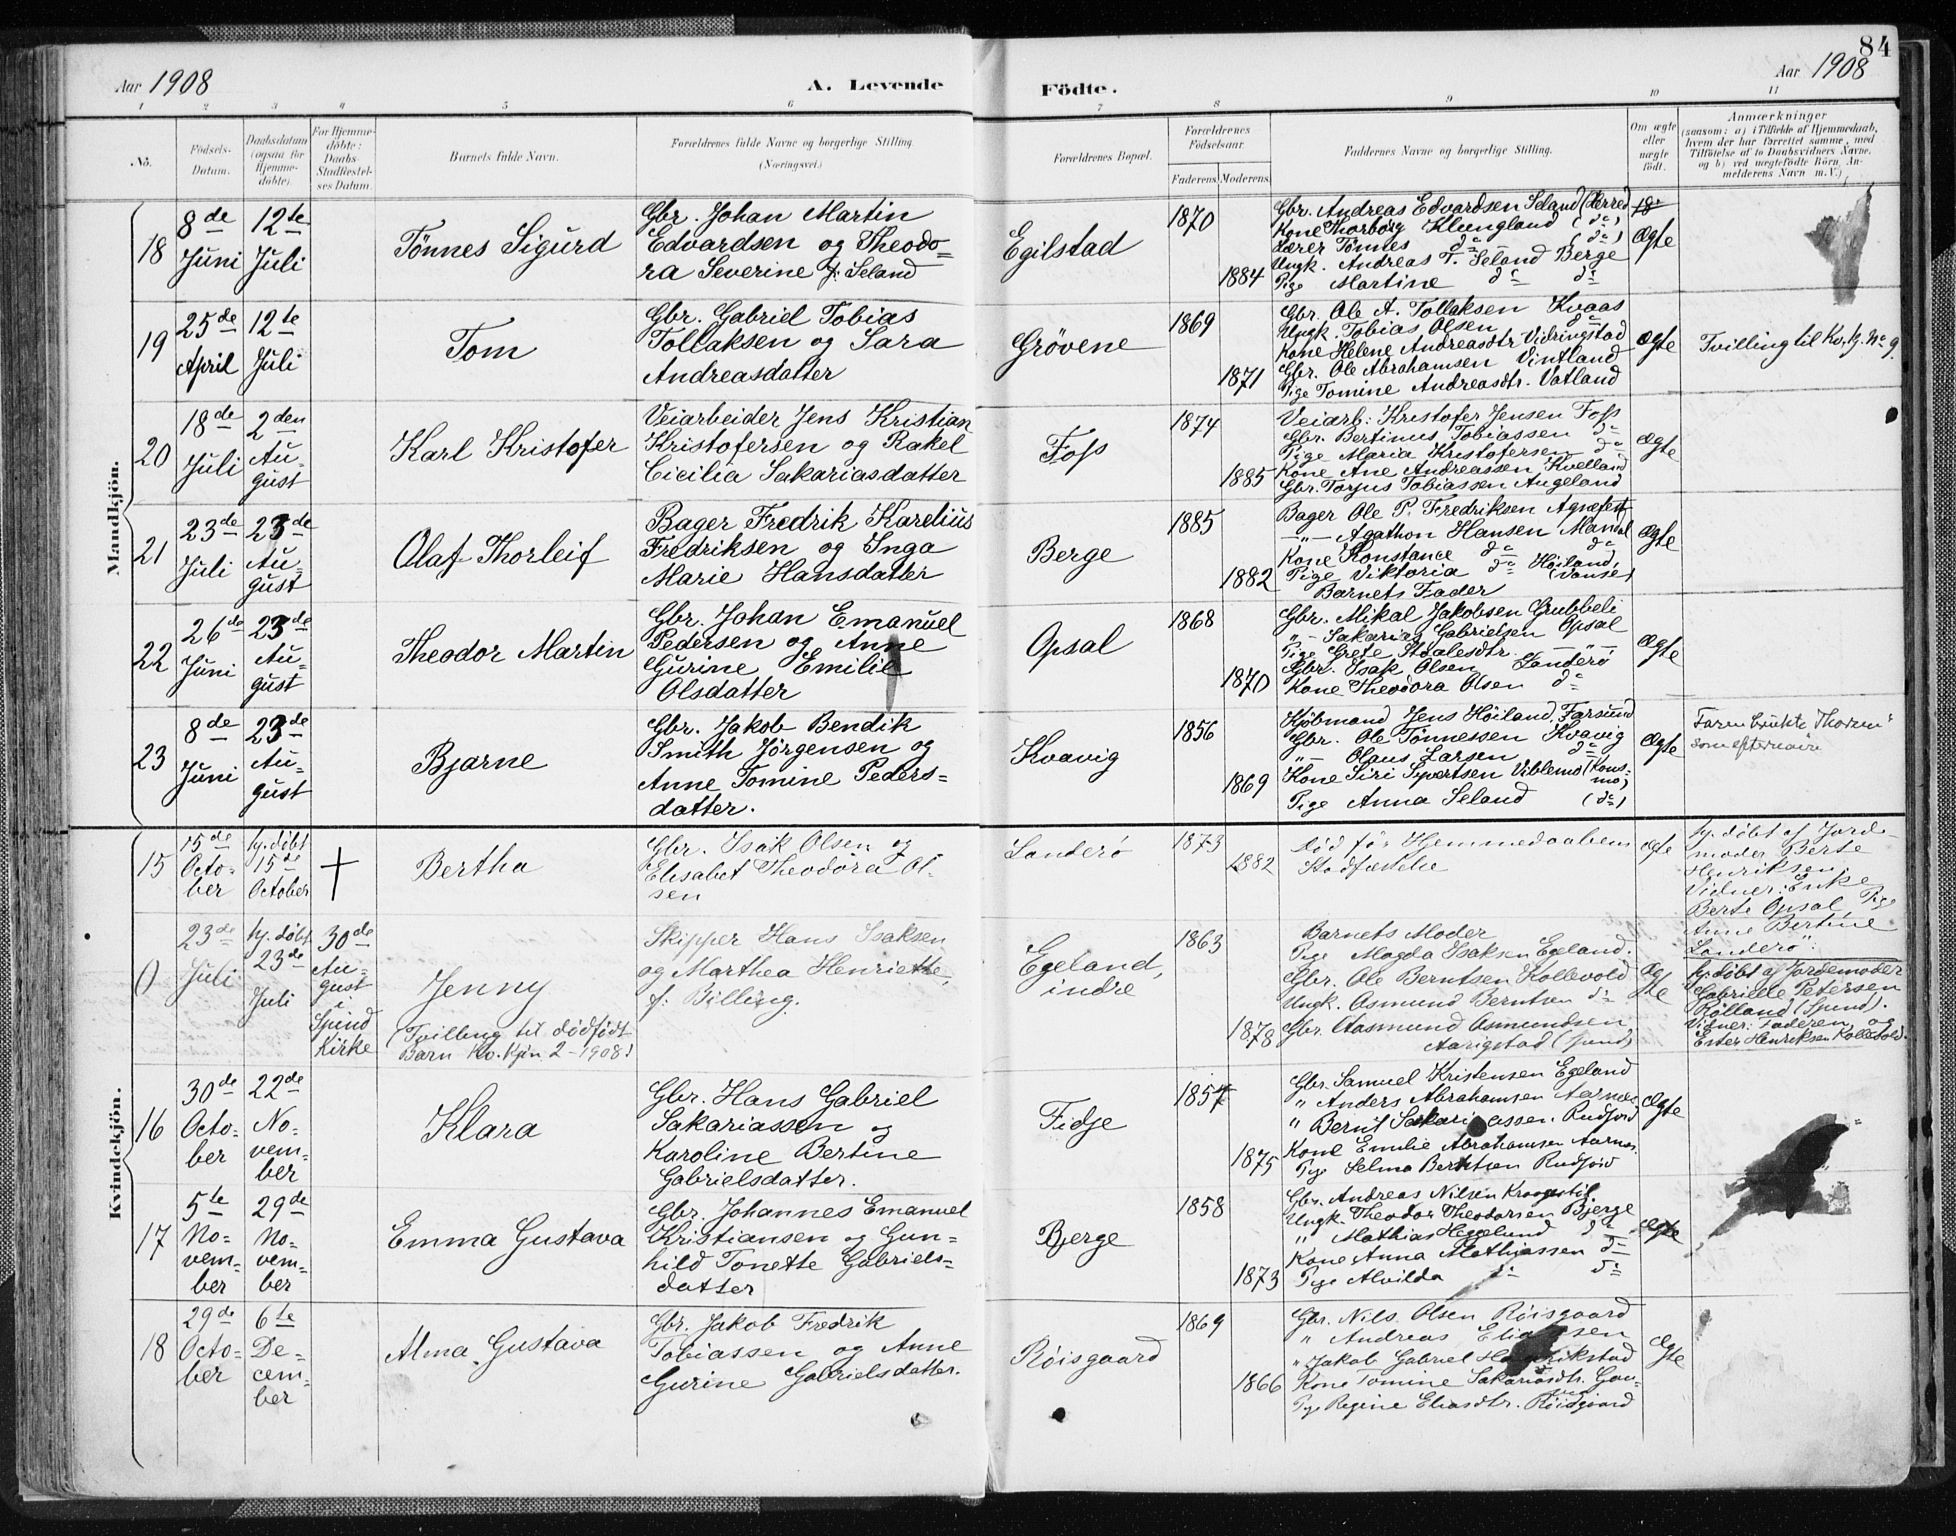 84
Aar 1908
A. Levende
Födte.
Aar 1908
1 2 3 4 5 6 7 8 9 10 11
No.
Födsels-
Datum.
Daabsdatum
(ogsaa for
Hjemme-
döbte).
For Hjemme-
döbte:
Daabs-
Stadfæstel-
ses Datum.
Barnets fulde Navn.
Forældrenes fulde Navne og borgerlige Stilling.
(Næringsvei.)
Forældrenes Bopæl.
Forældrenes
Födselsaar.
Faderens.
Moderens.
Faddernes Navne og borgerlige Stilling.
Om ægte
eller
uægte
födt.
Anmærkninger
(saasom: a) i Tilfælde af Hjemmedaab,
hvem der har forrettet samme, med
Tilföielse af to Daabsvidners Navne,
og b) ved uægtefödte Börn, An-
melderens Navn m. V.)
Mandkjön.
18
8de
Juni
12te
Juli
Tønnes Sigurd
Gbr. Johan Martin
Edvardsen og Theodo-
ra Severine f. Seland
Egilstad
1870
1884
Gbr. Andreas Edvardsen Seland (Herred
Kone Thorborg Klungland (dº)
Lærer Tønnes dº (dº)
Ungk. Andreas T. Seland Berge
Pige Martine dº dº
18
Ægte
19
25de
April
12te
Juli
Tom
Gbr. Gabriel Tobias
Tollaksen og Sara
Andreasdatter
Grøvene
1869
1871
Gbr. Ole A. Tollaksen Kvaas
Ungk. Tobias Olsen dº
Kone Helene Andreasdtr Vidringstad
Gbr. Ole Abrahamsen Vintland
Pige Tomine Andreasdtr. Vatland
Ægte
Tvilling til Kv.kj. No 9.
20
18de
Juli
2den
Au-
gust
Karl Kristofer
Veiarbeider Jens Kristian
Kristofersen og Rakel
Cicilia Sakariasdatter
Foss
1874
1885
Veiarb. Kristofer Jensen Foss
Gbr. Bertinus Tobiassen dº
Pige Maria Kristofersen dº
Kone Ane Andreassen Kvelland
Gbr. Torjus Tobiassen Augeland
Ægte
21
23de
Juli
23de
Au-
gust
Olaf Thorleif
Bager Fredrik Karelius
Fredriksen og Inga
Marie Hansdatter
Berge
1885
1882
Bager Ole P. Fredriksen Agnefest
—"— Agathon Hansen Mandal
Kone Konstance dº dº
Pige Viktoria dº Høiland,
Barnets Fader (Vanse)
Ægte
22
26de
Juni
23de
Au-
gust
Theodor Martin
Gbr. Johan Emanuel
Pedersen og Anne
Gurine Emilie
Olsdatter
Opsal
1868
1870
Gbr. Mikal Jakobsen Grubbeli
"— Sakarias Gabrielsen Opsal
Pige Grete Staalesdtr. —"—
Gbr. Isak Olsen Landerø
Kone Theodora Olsen dº
Ægte
23
8de
Juni
23de
Au-
gust
Bjarne
Gbr. Jakob Bendik
Smith Jørgensen og
Anne Tomine Peders-
datter.
Kvavig
1856
1869
Kjøbmand Jens Høiland, Farsund
Gbr. Ole Tønnessen Kvavig
"— Olaus Larsen dº
Kone Siri Syvertsen Viblemo (Kons-
mo)
Pige Anna Seland (dº)
Ægte
Faren brukte "Thorsen"
som efternavn
Kvindekjön.
15
15de
Octo-
ber
hj. døbt
15de
October
†
Bertha
Gbr. Isak Olsen og
Elisabet Theodora Ol-
sen
Landerø
1873
1882
Død før Hjemmedaabens
Stadfæstelse
Ægte
hj. døbt af Jorde-
moder Berte
Henriksen.
Vidner: Enke
Berte Opsal, Pige
Anne Bertine
Landerø.
()
23de
Juli
hj. døbt
23de
Juli
30de
Au-
gust
i
Spind
Kirke
Jenny
(Tvilling til dødfødt
Barn Kv.Kjøn 2-1908)
Skipper Hans Isaksen
og Marthea Henriette,
f. Billing.
Egeland,
indre
1863
1878
Barnets Moder
Pige Magda Isaksen Egeland.
Gbr. Ole Berntsen Kollevold
Ungk. Osmund Berntsen dº
Gbr. Aasmund Osmundsen,
Aarigstad (Spind)
Æg
te
hj. døbt af Jordemoder
Gabrielle Petersen
Rølland (Spind).
Vidner: Faderen og
Ester Henriksen Kollevold.
16
30de
Octo-
ber
22de
No-
vem-
ber
Klara
Gbr. Hans Gabriel
Sakariassen og
Karoline Bertine
Gabrielsdatter.
Fidje
1857
1875
Gbr. Samuel Kristensen Egeland
" Anders Abrahamsen Aarnes
" Bernt Sakariassen, Rudjord
Kone Emilie Abrahamsen Aarnes
Pige Selma Berntsen Rudjord
Ægte
17
5te
No-
vem-
ber
29de
No-
vem-
ber
Emma Gustava
Gbr. Johannes Emanuel
Kristiansen og Gun-
hild Tonette Gabriels-
datter
Bjerge
1858
1873
Gbr. Andreas Nilsen
Ungk. Theodor Theodorsen Bjerge
" Mathias Hegelund dº
Kone Anna Mathiassen dº
Pige Alvilda dº dº
Ægte
18
29de
Octo-
ber
6te
De-
cem-
ber
Alma Gustava
Gbr. Jakob Fredrik
Tobiassen og Anne
Gurine Gabrielsdatter.
Røisgaard
1869
1866
Gbr. Nils Olsen Røisgaard
" Andreas
" Jakob Gabriel
Kone Tomine Sakariasdtr.
Pige Regine Eliasdtr. Røisgaard
Æg
te